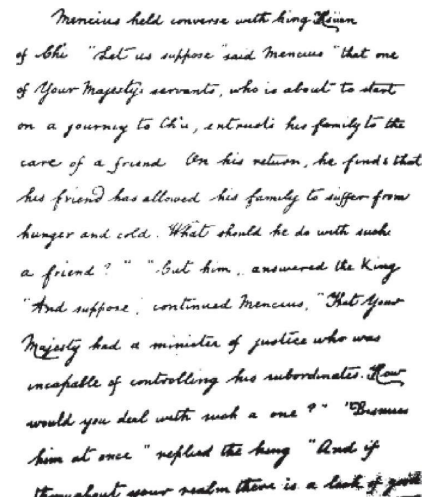 Mencius held converse with king Hsüen
of Ch'i "Let us suppose" said Mencius "that one
of Your Majesty's servants, who is about to start
on a journey to Ch'u, entrusts his family to the
care of a friend On his return, he finds that
his friend has allowed his family to suffer from
hunger and cold. What should he do with such
a friend?" "Cut him, answered the King
"And suppose, continued Mencius, "that Your
Majesty had a minister of justice who was
incapable of controlling his subordinates. How
would you deal with such a one?" "Dismiss
him at once" replied the king "And if
throughout your realm there is a lack of good